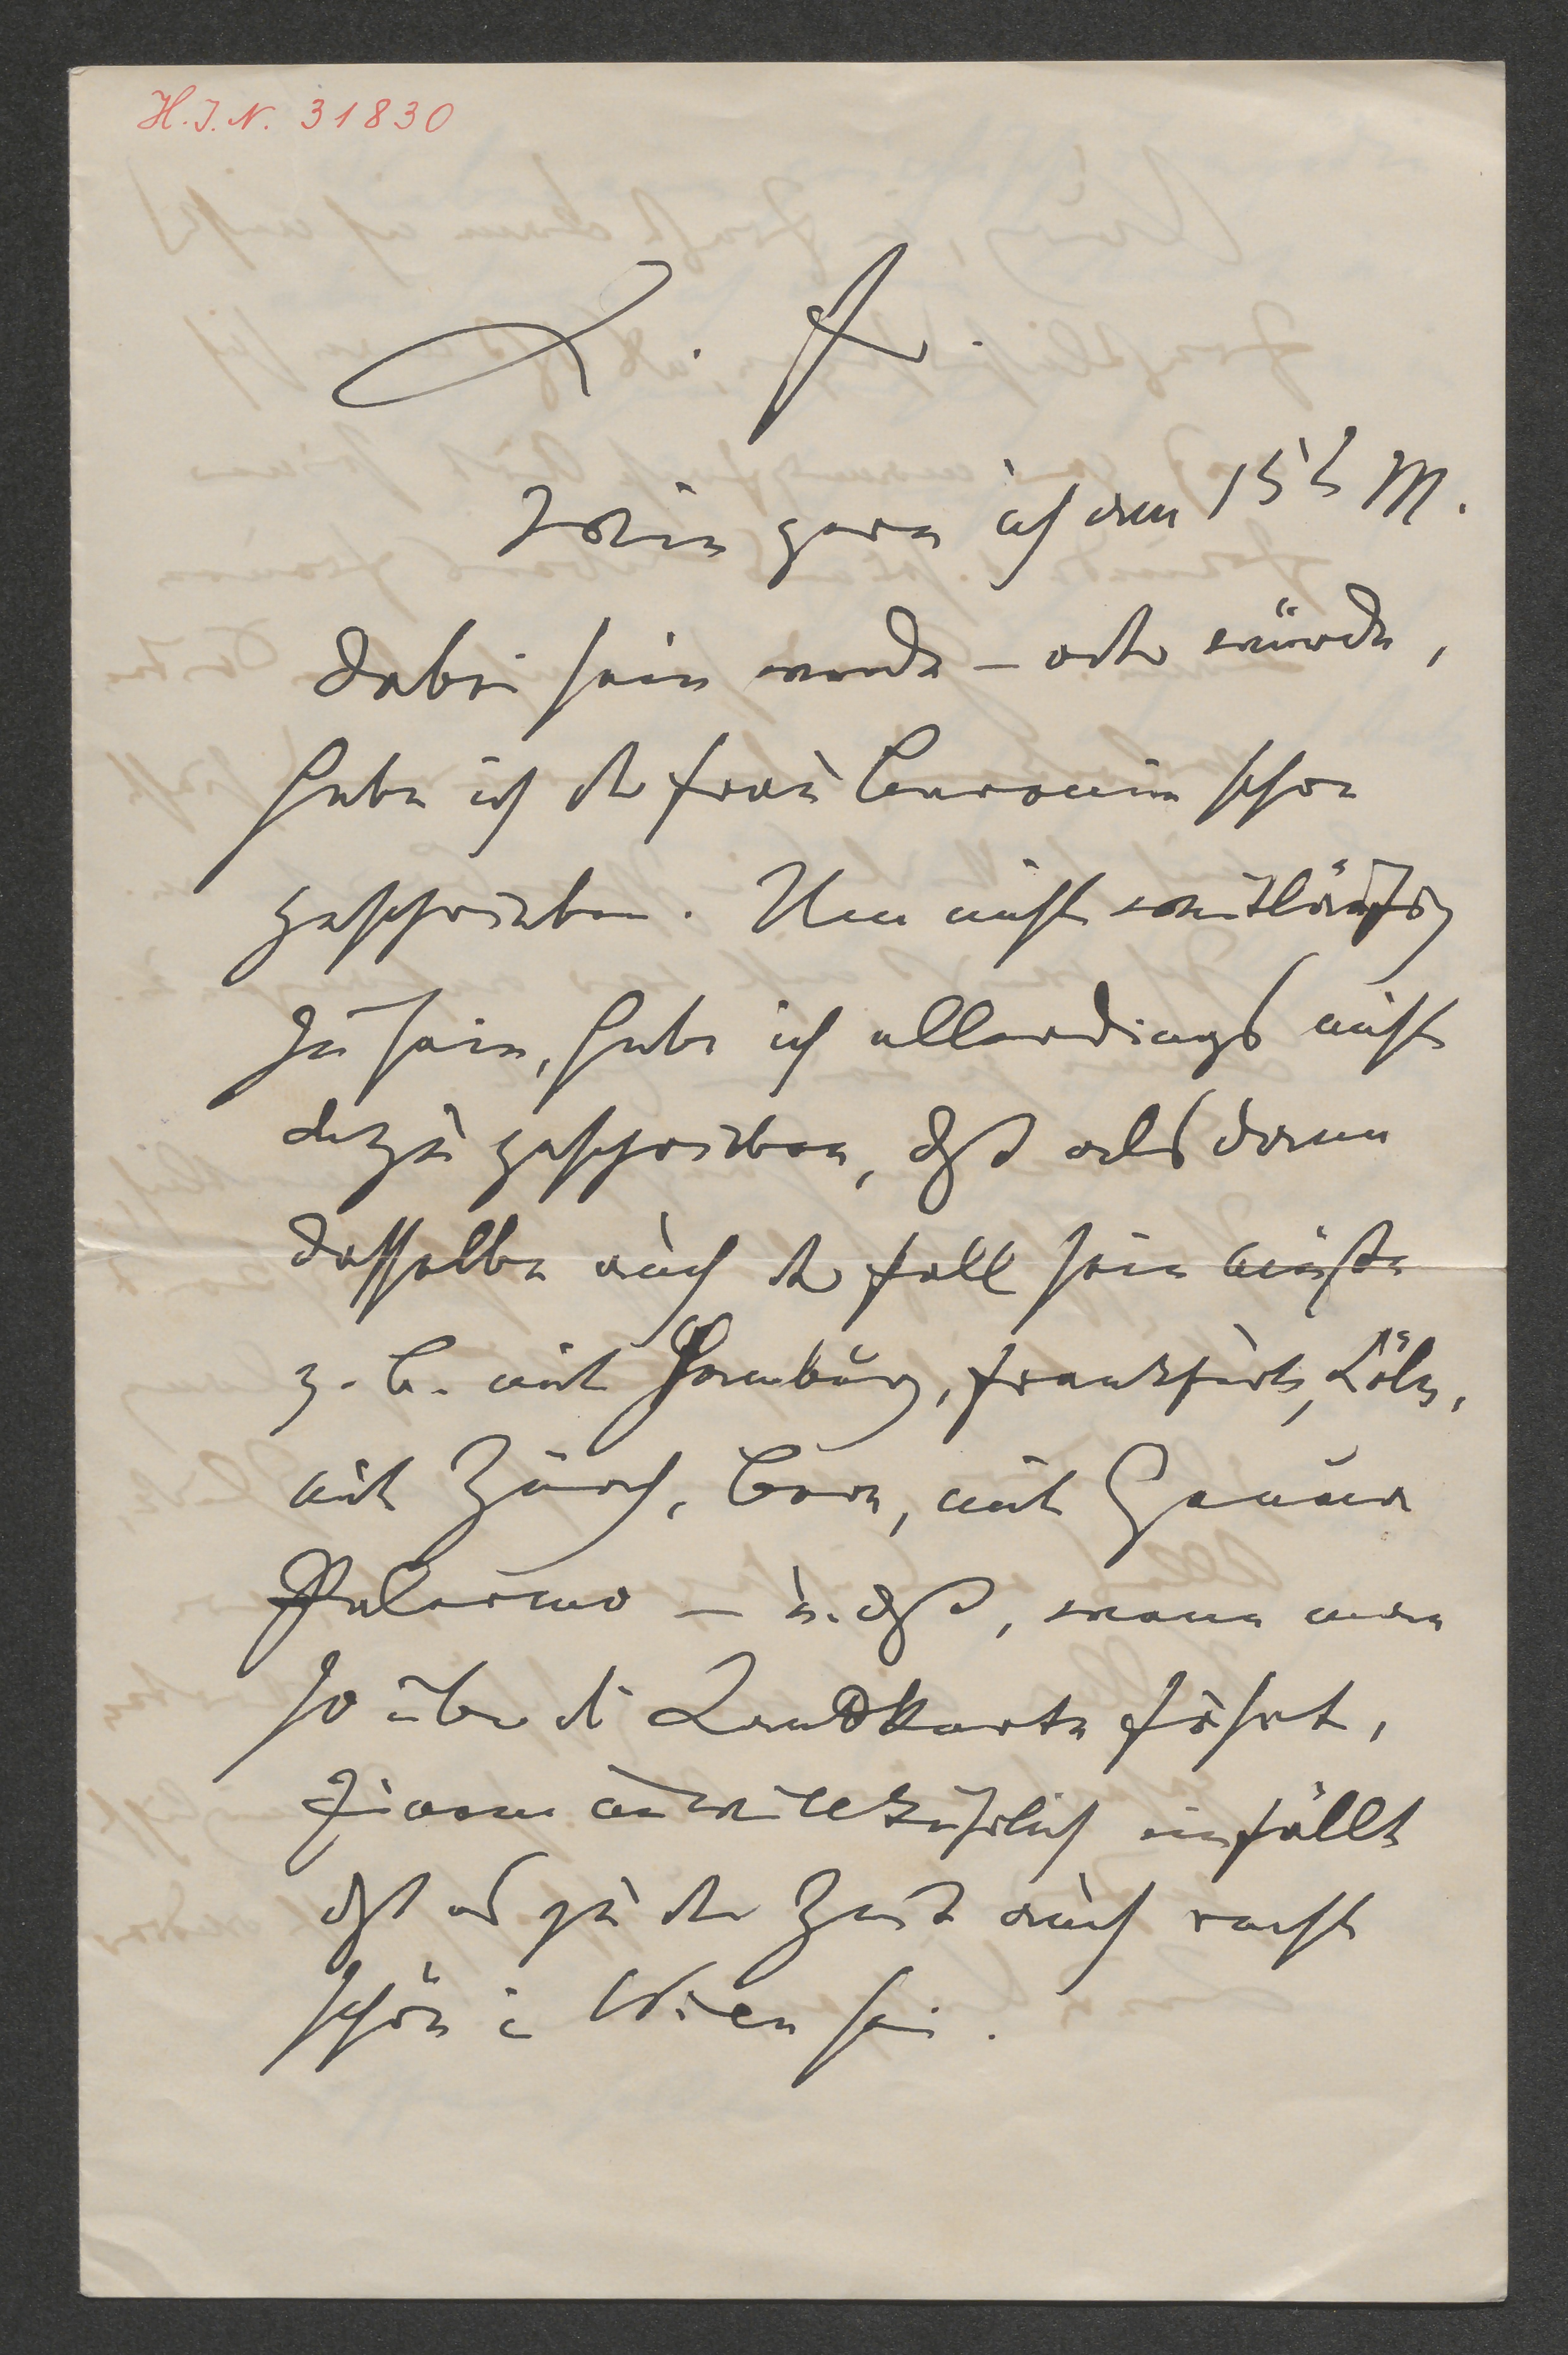 H.I.N. 31830
L. Fr.
Wie gern ich den 15t M.
dabei sein werde – oder würde,
habe ich der Frau Baronin schon
geschrieben. Um nicht weitläufig
zu sein, habe ich allerdings nicht
dazu geschrieben, daß alsdann
dasselbe auch der Fall sein müßte
z. B. mit Hamburg, Frankfurt, Köln,
mit Zürich, Bern, mit Genua
Palermo – u. daß, wenn man
so über die Landkarte fährt,
Einem unwillkührlich einfällt
daß es zu der Zeit auch recht
schön in Wien sei.